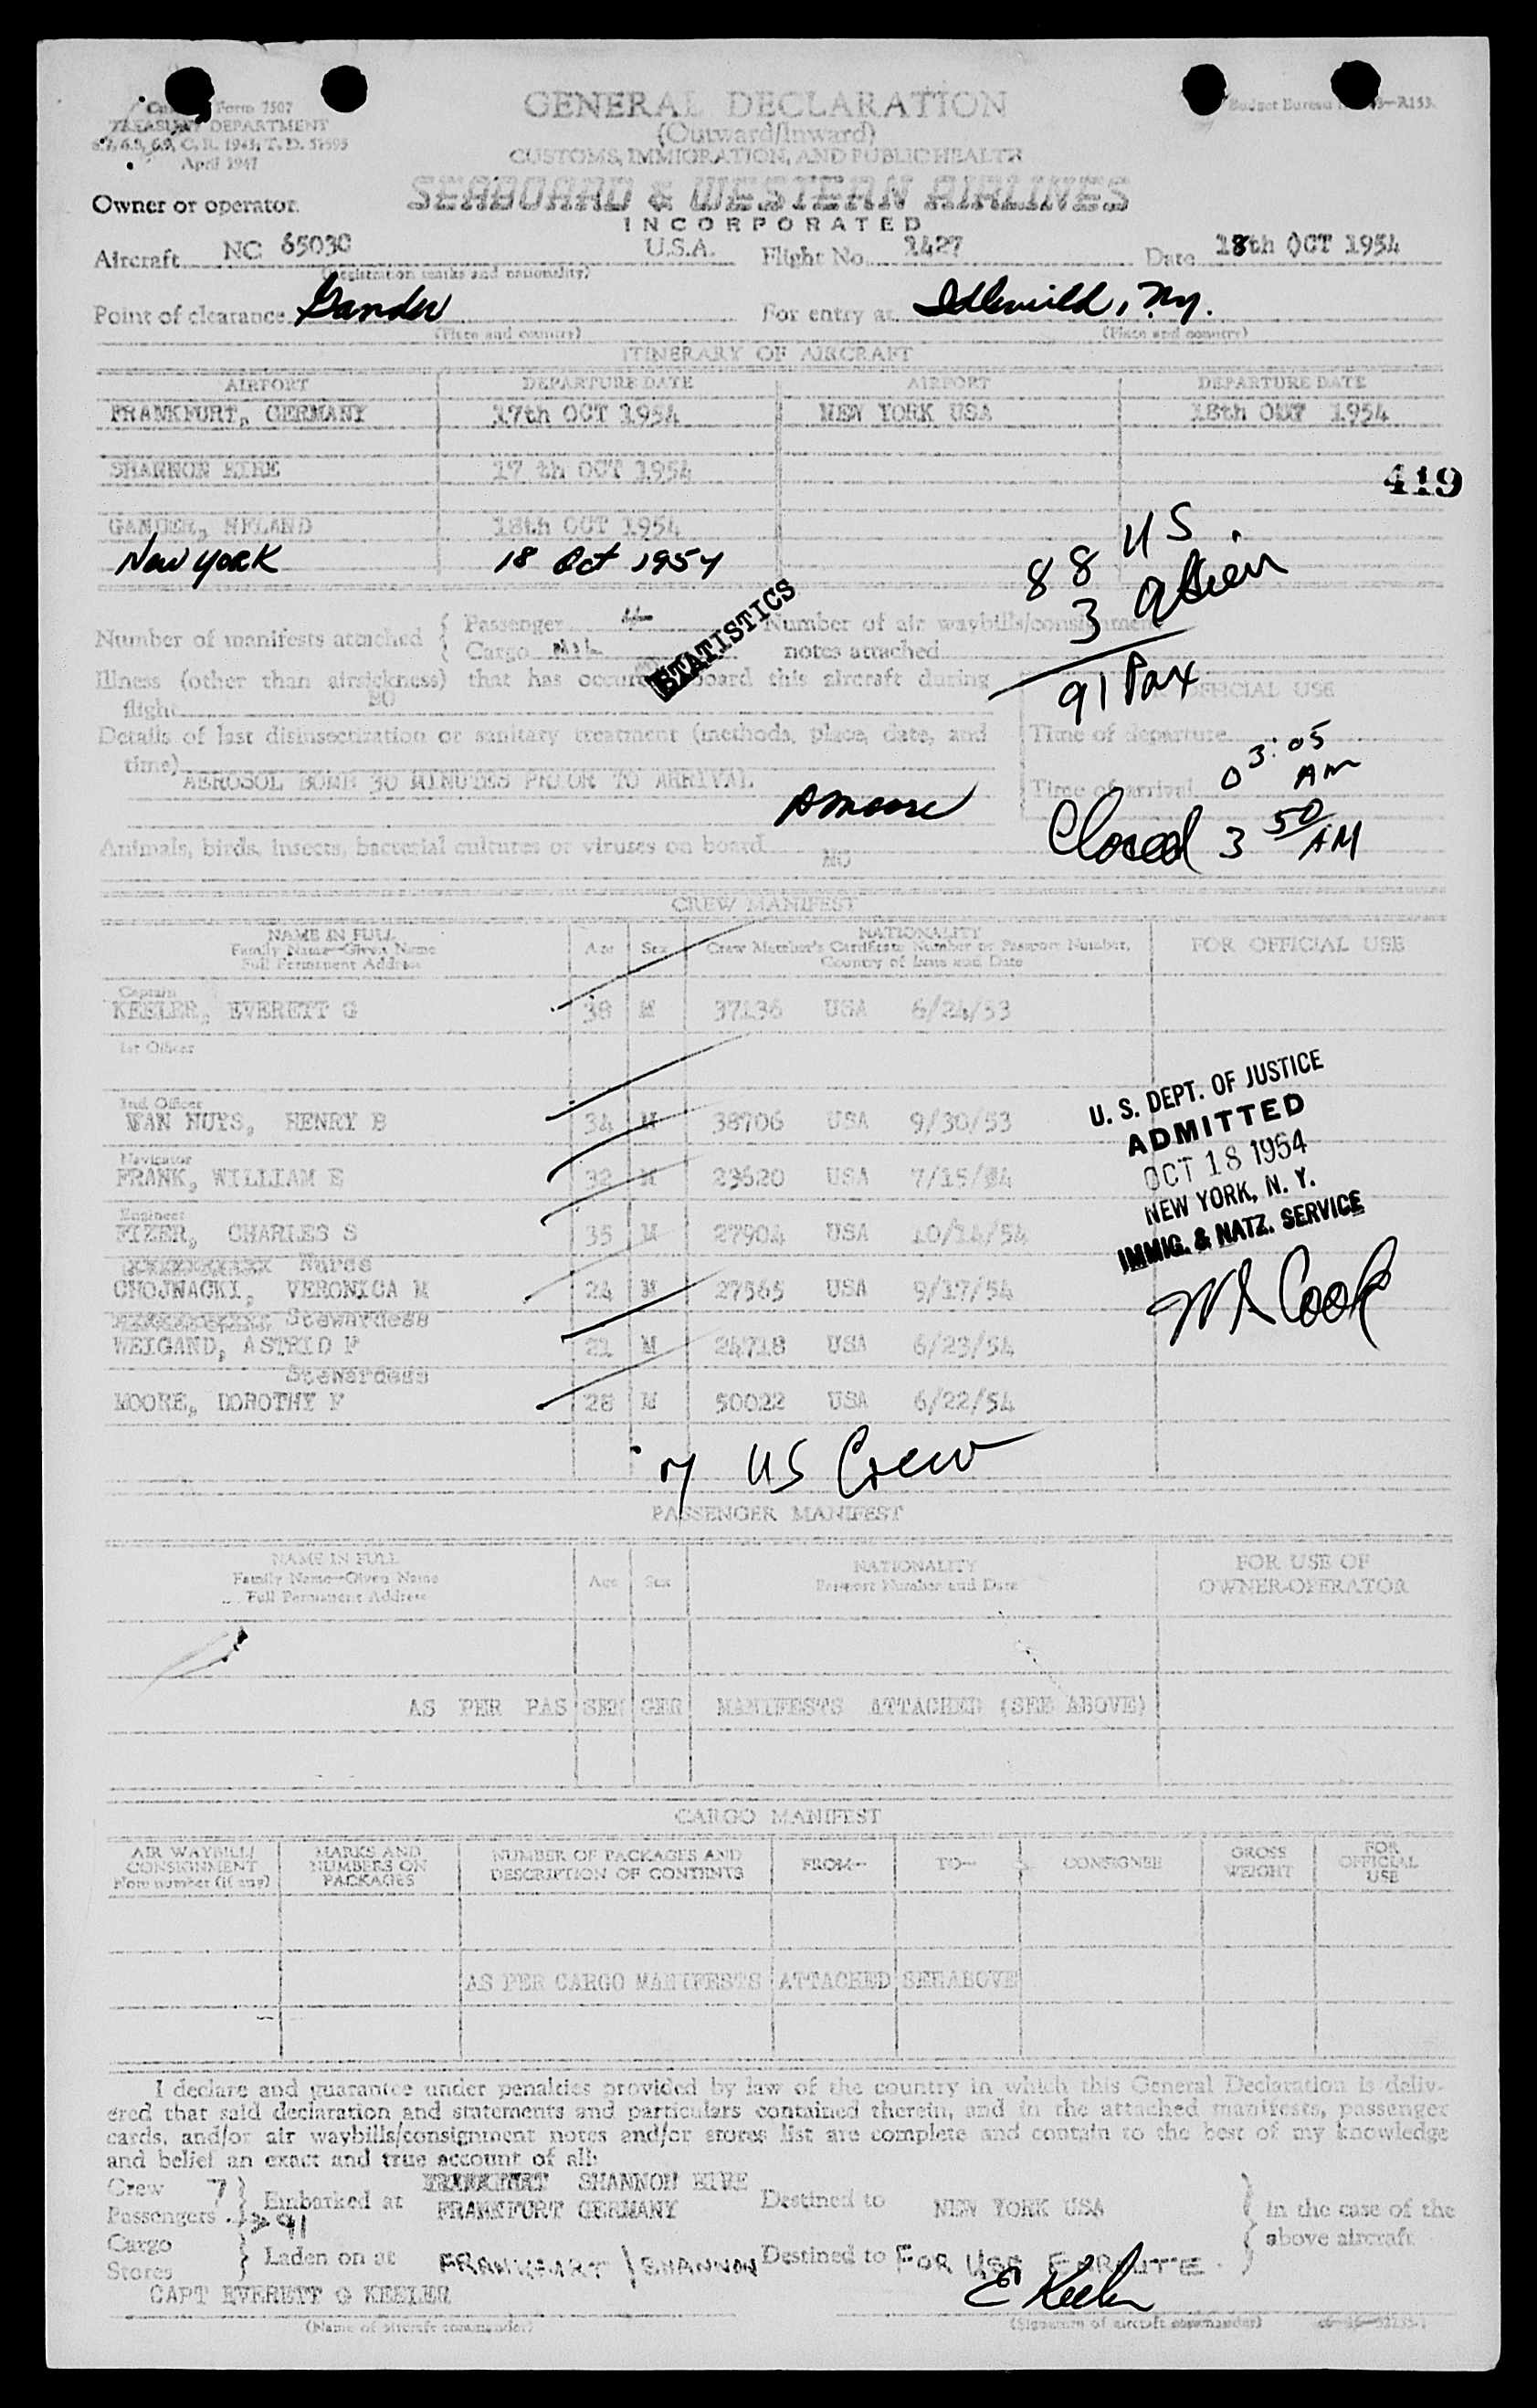 Form 7507
TREASURY DEPARTMENT
April 1947
Budget Bureau
GENERAL DECLARATION
(Outward/Inward)
CUSTOMS, IMMIGRATION, AND PUBLIC HEALTH
Owner or operator. SEABOARD & WESTERN AIRLINES
INCORPORATED
Aircraft NC 6503C U.S.A. Flight No. 1427 Date 18th OCT 1954
(Registration marks and nationality)
Point of clearance Gander For entry at Idlewild, N.Y.
(Place and country) (Place and country)
ITINERARY OF AIRCRAFT
AIRPORT DEPARTURE DATE AIRPORT DEPARTURE DATE
FRANKFURT, GERMANY 17th OCT 1954 NEW YORK USA 18th OCT 1954
SHANNON EIRE 17 th OCT 1954
419
GANDER, NFLAND 18th OCT 1954
New York 18 Oct 1954
88 US
3 alien
91 Pax
STATISTICS
Number of manifests attached { Passenger Number of air waybills/consignment
Cargo NIL notes attached
Illness (other than airsickness) that has occurred on board this aircraft during
flight NO
OFFICIAL USE
Details of last disinsectization or sanitary treatment (methods, place, date, and
time) AEROSOL BOMB 30 MINUTES PRIOR TO ARRIVAL
Time of departure
Time of arrival 03:05 AM
DMoore
Closed 3 50 AM
Animals, birds, insects, bacterial cultures or viruses on board NO
CREW MANIFEST
NAME IN FULL
Family Name—Given Name
Full Permanent Address
Age Sex
NATIONALITY
Crew Member's Certificate Number or Passport Number,
Country of Issue and Date
FOR OFFICIAL USE
Captain
KEELER, EVERETT G 38 M 37136 USA 6/24/53
1st Officer
2nd Officer
VAN NUYS, HENRY B 34 M 38706 USA 9/30/53
Navigator
FRANK, WILLIAM E 32 M 23620 USA 7/15/54
Engineer
FIZER, CHARLES S 35 M 27904 USA 10/14/54
Nurse
CHOJNACKI, VERONICA M 24 M 27565 USA 9/17/54
Stewardess
WEIGAND, ASTRID F 21 M 24718 USA 6/23/54
Stewardess
MOORE, DOROTHY F 28 M 50022 USA 6/22/54
U. S. DEPT. OF JUSTICE
ADMITTED
OCT 18 1954
NEW YORK, N. Y.
IMMIG. & NATZ. SERVICE
Cook
7 US Crew
PASSENGER MANIFEST
NAME IN FULL
Family Name—Given Name
Full Permanent Address
Age Sex
NATIONALITY
Passport Number and Date
FOR USE OF
OWNER-OPERATOR
AS PER PASSENGER MANIFESTS ATTACHED (SEE ABOVE)
CARGO MANIFEST
AIR WAYBILL/
CONSIGNMENT
Note number (if any)
MARKS AND
NUMBERS ON
PACKAGES
NUMBER OF PACKAGES AND
DESCRIPTION OF CONTENTS
FROM— TO— CONSIGNEE
GROSS
WEIGHT
FOR
OFFICIAL
USE
AS PER CARGO MANIFESTS ATTACHED SEEABOVE
I declare and guarantee under penalties provided by law of the country in which this General Declaration is deliv-
ered that said declaration and statements and particulars contained therein, and in the attached manifests, passenger
cards, and/or air waybills/consignment notes and/or stores list are complete and contain to the best of my knowledge
and belief an exact and true account of all:
Crew 7 } Embarked at SHANNON EIRE
Passengers 91 FRANKFURT GERMANY Destined to NEW YORK USA { In the case of the
above aircraft
Cargo
Stores } Laden on at FRANKFURT / SHANNON Destined to FOR USE ENROUTE
CAPT EVERETT G KEELER E Keeler
(Name of aircraft commander) (Signature of aircraft commander)